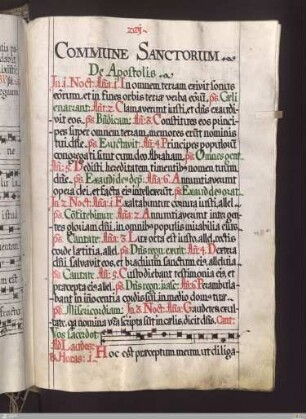 COMMUNE SANCTORUM.
De Apostolis.
In 1. Noct. Añt: 1. In omnem terram exivit sonus
eorum, et in fines orbis terræ verba eorũ. ps. Cæli
enarrant: Añt: 2. Clamaverunt justi, et dñs exaudi-
vit eos. ps. Bñdicam: Añt: 3. Constitues eos princi-
pes super omnem terram, memores erunt nominis
tui dñe. ps. Eructavit. Añt: 4. Principes populorũ
congregati sunt cum deo Abraham. ps. Omnes gent.
Añt: 5. Dedisti hereditatem timentibus nomen tuum
dñe. ps. Exaudi deus dep. Añt: 6. Annuntiaverunt
opera dei, et facta eius intellexerũt. ps. Exaudi deus orat.
In 2. Noct: Añt: 1. Exaltabuntur cornua justi, allel.
ps. Confitebimur. Añt: 2. Annuntiaverunt inter gen-
tes gloriam dñi, in omnibus populis mirabilia eius.
ps. Cantate. Añt: 3. Lux orta est justo, allel. rectis
corde lætitia, allel. ps. Dñs regn: exult. Añt: 4. Dextera
dñi salvavit eos, et brachium sanctum eis, alleluia
ps. Cantate. Añt: 5. Custodiebant testimonia eis, et
præcepta eis allel. ps. Dñs regn: irasc: Añt: 6. Perambula-
bant in innocentia cordis sui, in medio domus tuæ.
ps. Misericordiam: In 3. Noct: Añt: 1. Gaudete et exul-
tate, quia nomina vra scripta sunt in cælis, dicit dñs. Cant:
Vos sacerdot:
Ad Laudes:
& Horas: 1. Hoc est præceptum meum, ut diliga-